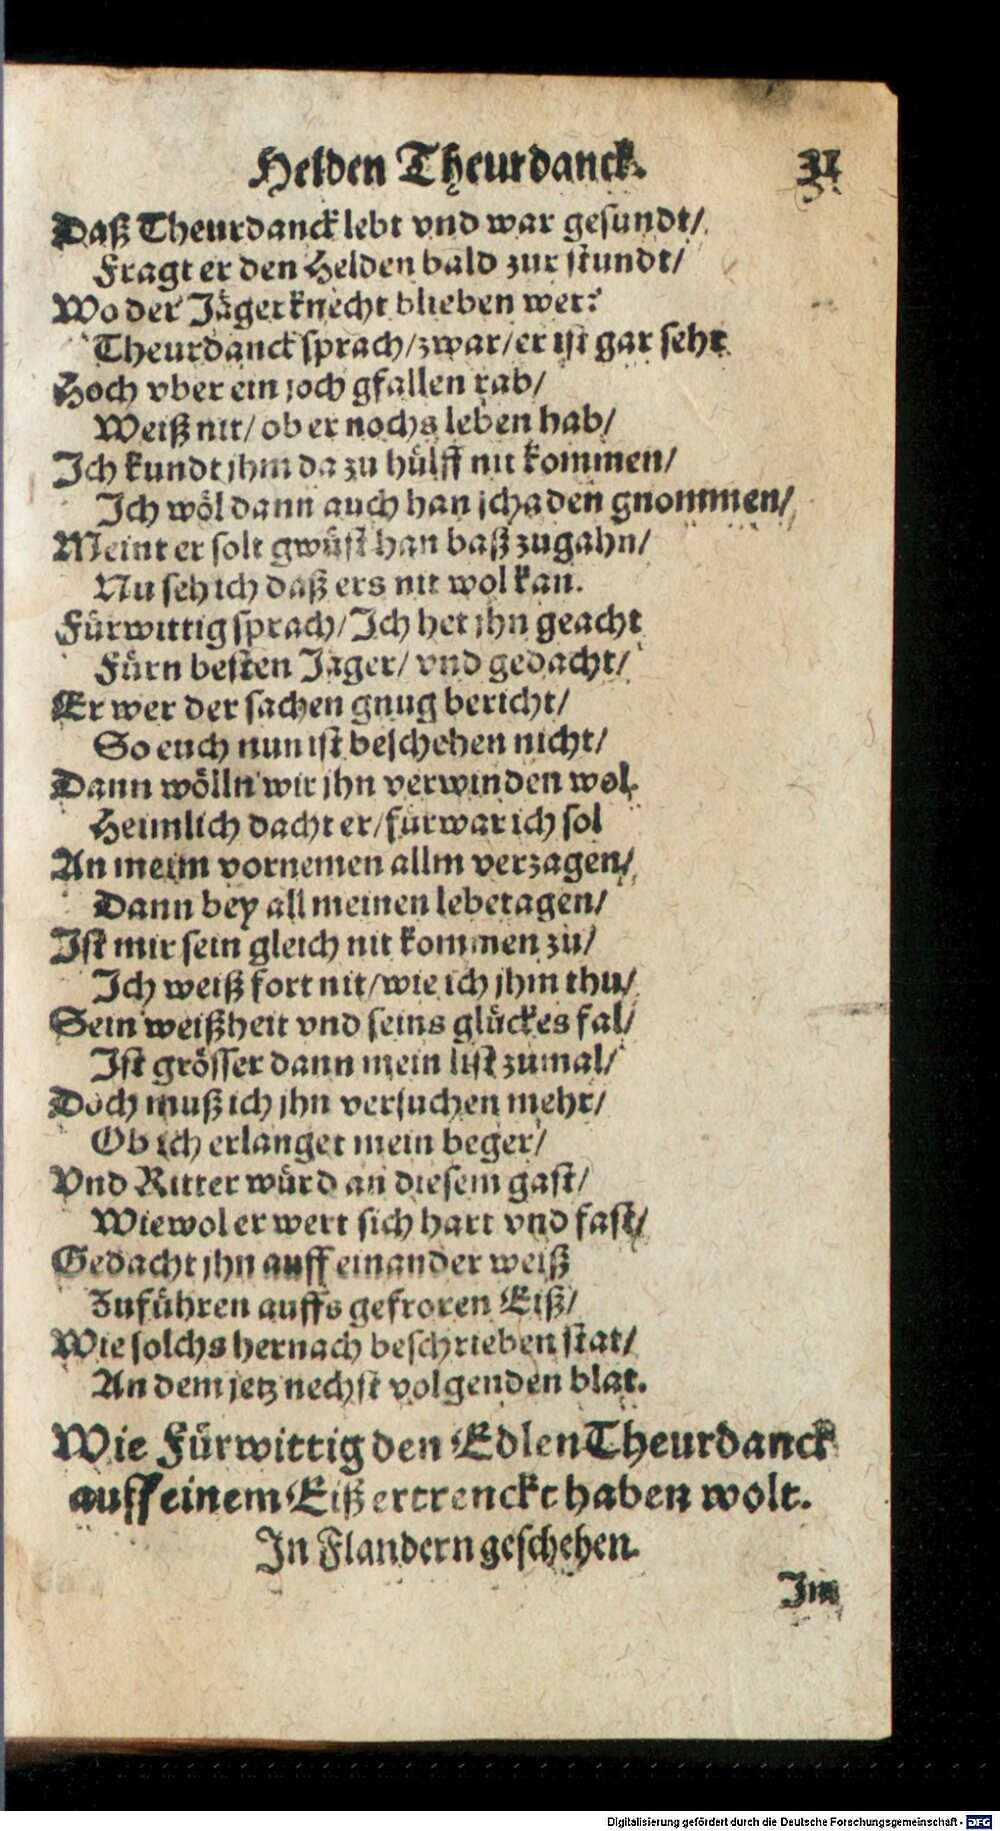 Helden Theurdanck. 31
Daß Theurdanck lebt vnd war gesundt/
Fragt er den Helden bald zur stundt/
Wo der Jägerknecht blieben wer?
Theurdanck sprach/ zwar/ er ist gar sehr
Hoch vber ein joch gfallen rab/
Weiß nit/ ob er nochs leben hab/
Ich kundt jhm da zu hülff nit kommen/
Ich wöl dann auch han schaden gnommen/
Meint er solt gwüst han baß zugahn/
Nu seh ich daß ers nit wol kan.
Fürwittig sprach/ Ich het jhn geacht
Fürn besten Jäger/ vnd gedacht/
Er wer der sachen gnug bericht/
So euch nun ist beschehen nicht/
Dann wölln wir jhn verwinden wol.
Heimlich dacht er/ fürwar ich sol
An meim vornemen allm verzagen/
Dann bey all meinen lebetagen/
Ist mir sein gleich nit kommen zu/
Ich weiß fort nit/ wie ich jhm thu/
Sein weißheit vnd seins glückes fal/
Ist grösser dann mein list zumal/
Doch muß ich jhn versuchen mehr/
Ob ich erlanget mein beger/
Vnd Ritter würd an diesem gast/
Wiewol er wert sich hart vnd fast/
Gedacht jhn auff einander weiß
Zuführen auffs gefroren Eiß/
Wie solchs hernach beschrieben stat/
An dem jetz nechst volgenden blat.
Wie Fürwittig den Edlen Theurdanck
auff einem Eiß ertrenckt haben wolt.
In Flandern geschehen.
Im
Digitalisierung gefördert durch die Deutsche Forschungsgemeinschaft - DFG